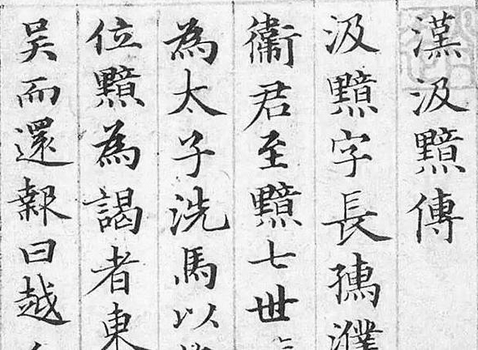 漢汲黯傳
汲黯字長孺濮
衛君至黯七世
為太子洗馬以
位黯為謁者東
吳而還報曰越